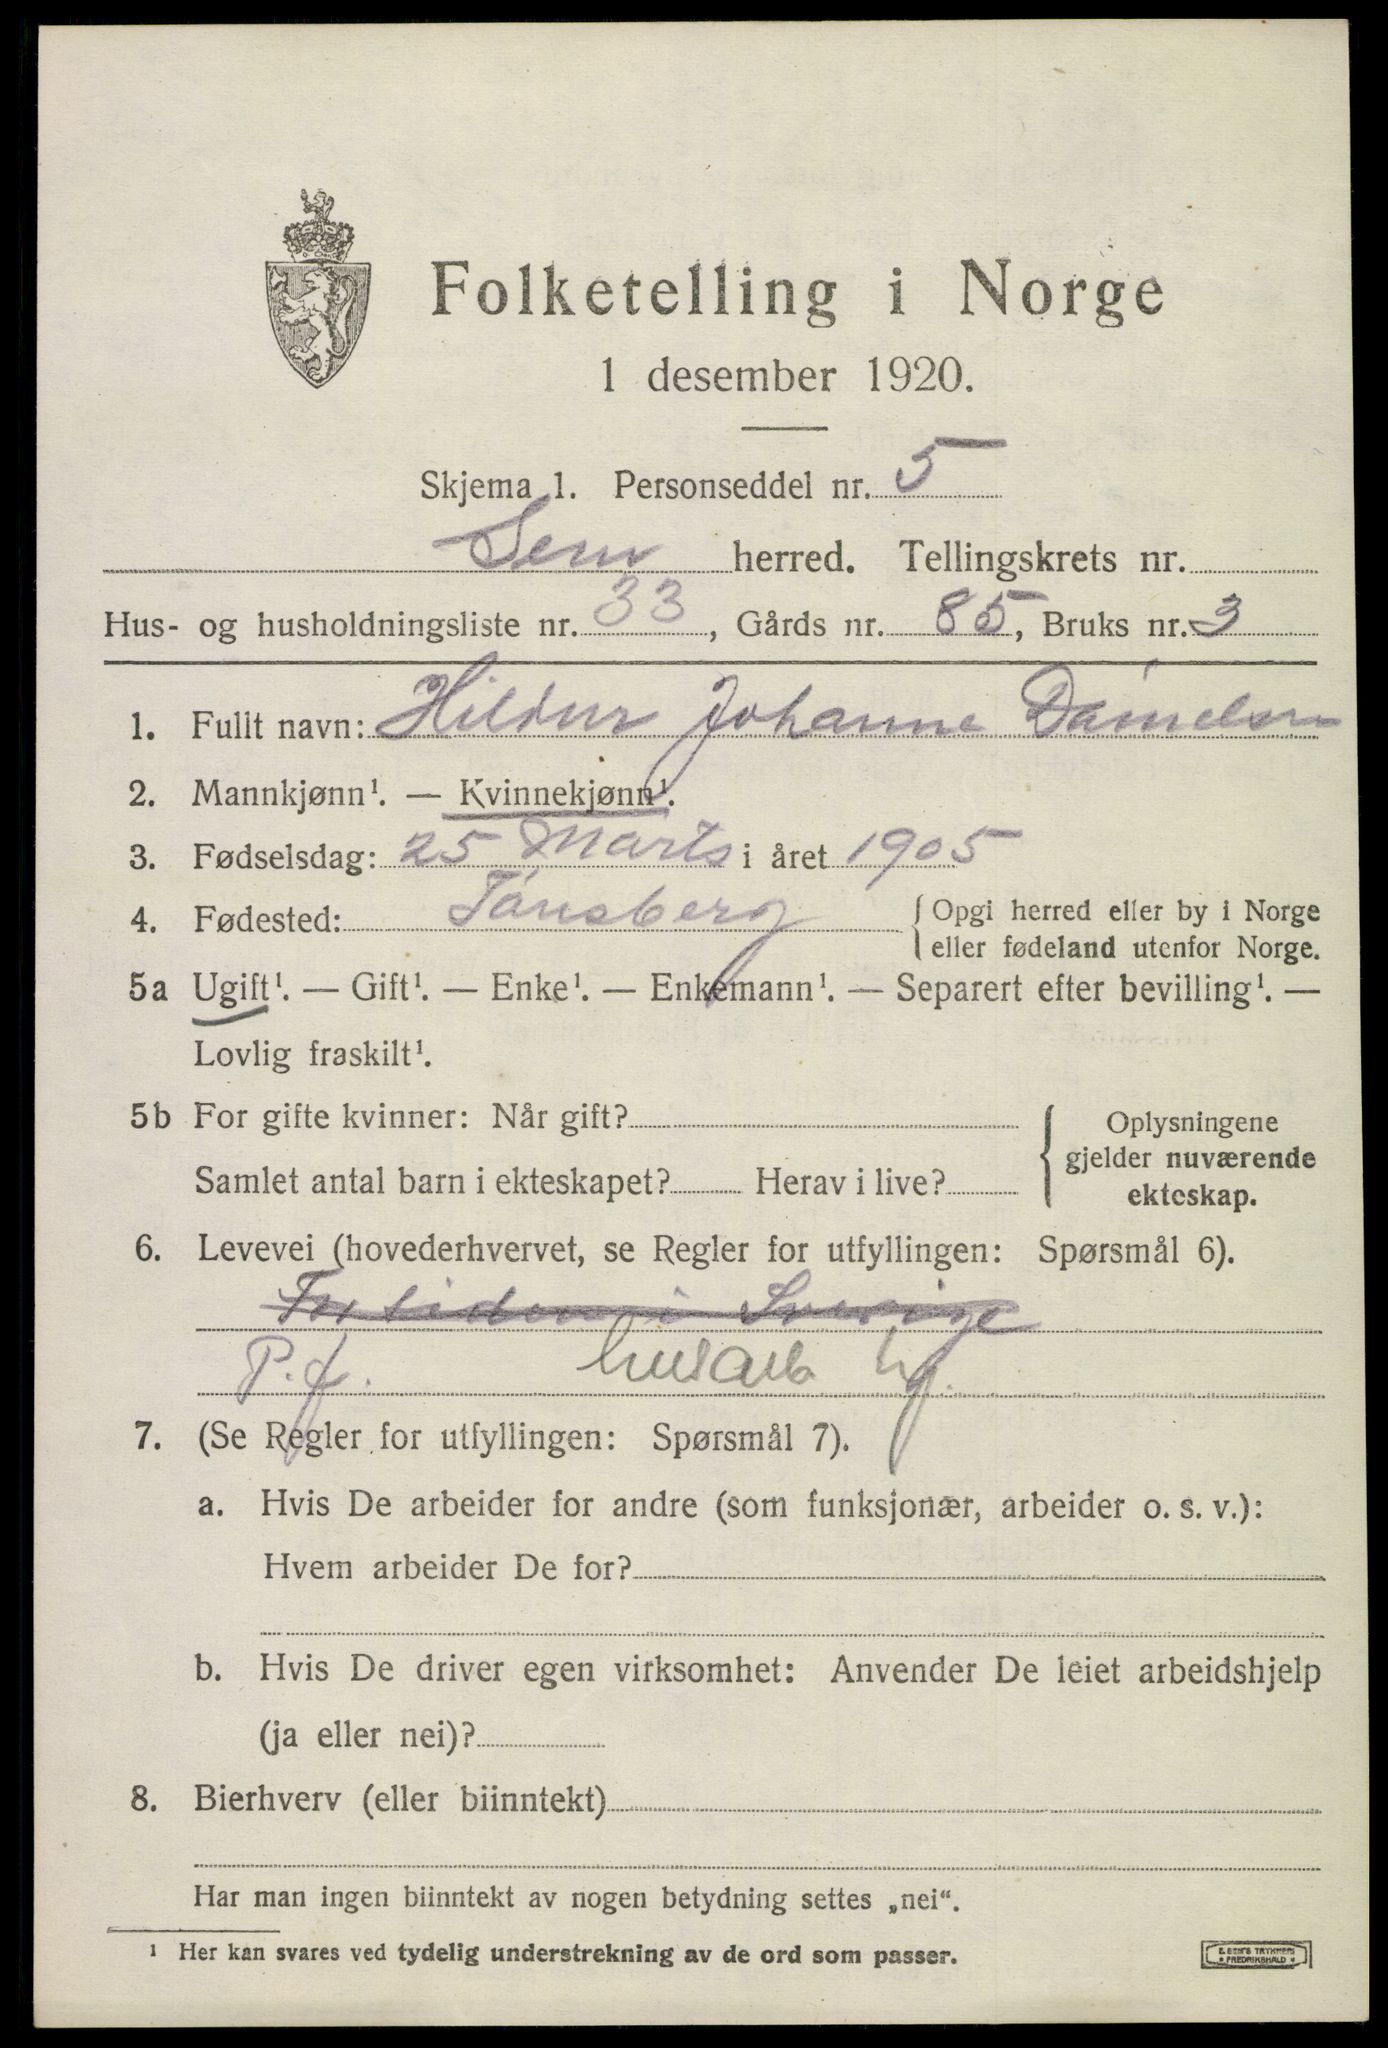 Folketelling i Norge
1 desember 1920.
Skjema 1. Personseddel nr. 5
Sem herred. Tellingskrets nr.
Hus- og husholdningsliste nr. 33, Gårds nr. 85, Bruks nr. 3
1. Fullt navn: Hildur Johanne Danielsen
2. Mannkjønn¹. — Kvinnekjønn¹.
3. Fødselsdag: 25 Marts i året 1905
4. Fødested: Tønsberg { Opgi herred eller by i Norge
eller fødeland utenfor Norge.
5a Ugift¹. — Gift¹. — Enke¹. — Enkemann¹. — Separert efter bevilling¹. —
Lovlig fraskilt¹.
5b For gifte kvinner: Når gift?
Samlet antal barn i ekteskapet? Herav i live?
Oplysningene
gjelder nuværende
ekteskap.
6. Levevei (hovederhvervet, se Regler for utfyllingen: Spørsmål 6).
For tiden i Sverige
P.f. husarb hf.
7. (Se Regler for utfyllingen: Spørsmål 7).
a. Hvis De arbeider for andre (som funksjonær, arbeider o. s. v.):
Hvem arbeider De for?
b. Hvis De driver egen virksomhet: Anvender De leiet arbeidshjelp
(ja eller nei)?
8. Bierhverv (eller biinntekt)
Har man ingen biinntekt av nogen betydning settes „nei“.
¹ Her kan svares ved tydelig understrekning av de ord som passer.
E. SEM'S TRYKKERI
FREDRIKSHALD